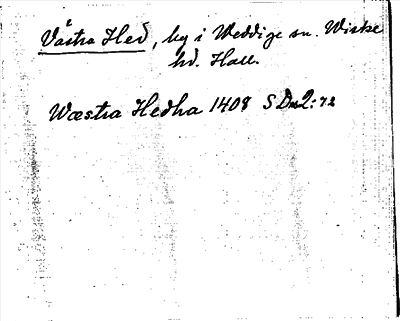 Västra Hed, by i Weddige sn. Wiske
hd. Hall.
Wæstra Hedha 1408 SDn2:72